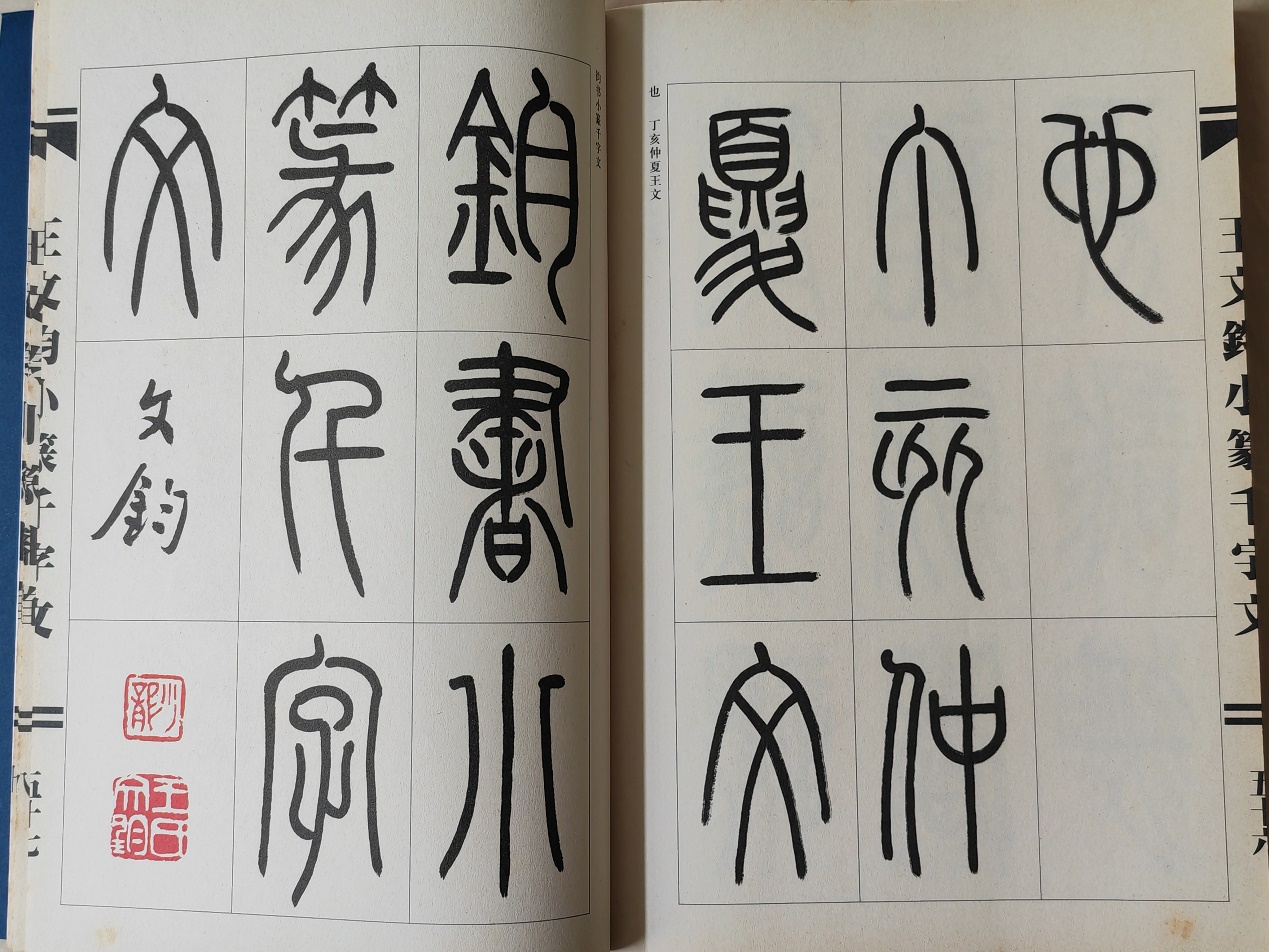 王文鈞小篆千字文
五十六
也
丁亥仲
夏王文
也 丁亥仲夏王文
钧书小篆千字文
鈞書小
篆千字
文
文鈞
王氏文鈞
五十七